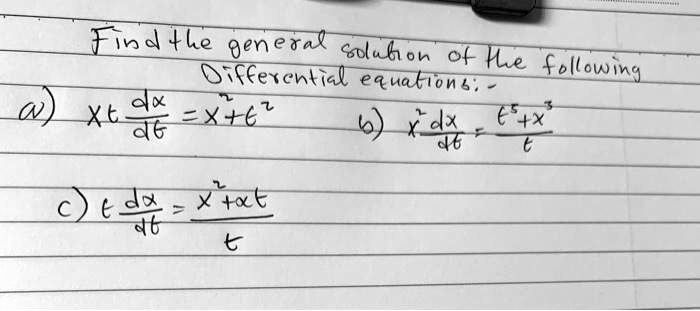 Find the general solution of the following
Differential equations: -
a) xt dx/dt = x²+t²
b) x² dx/dt = t⁵+x³/t
c) t dx/dt = x²+xt/t